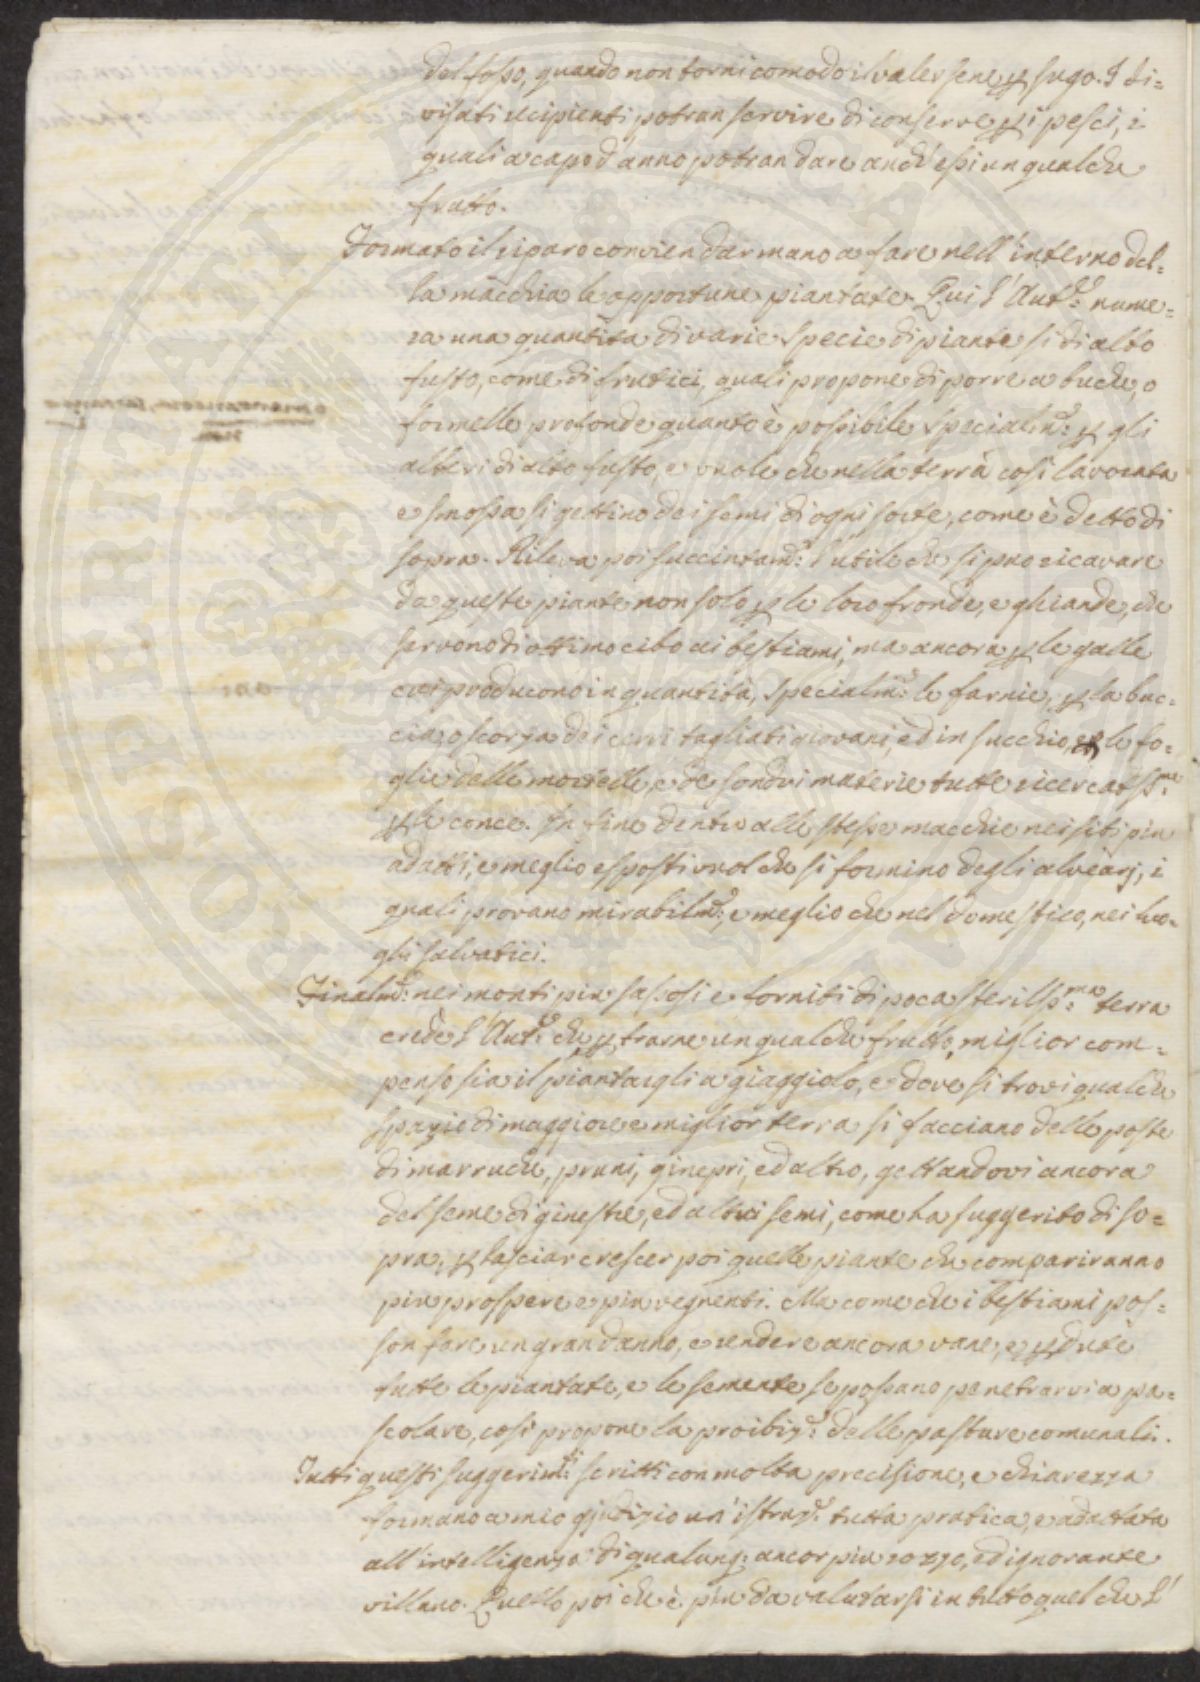 del fosso, quando non torni comodo il valersene per sugo. I di=
visati recipienti potran servire di conserve per i pesci, i
quali a capo d'anno potran dare anch'essi un qualche
frutto.
Formato il riparo convien dar mano a fare nell'interno del=
la macchia le opportune piantate. Qui l'Aut.e nume=
ra una quantità di varie specie di piante sì di alto
fusto, come di frutici, quali propone di porre a buche, o
formelle profonde quanto è possibile specialm.e per gli
alberi di alto fusto, e vuole che nella terra così lavorata
e smossa si gettino dei semi di ogni sorte, come è detto di
sopra. Rileva poi succintam.e l'utile che si può ricavare
da queste piante non solo per le loro fronde, e ghiande, che
servono di ottimo cibo ai bestiami, ma ancora per le galle
cui producono in quantità, specialm.e le farnie, per la buc=
cia, o scorza dei cerri tagliati giovani, ed in succhio, e per le fo=
glie delle mortelle, e de sondri materie tutte ricercatiss.me
per le conce. In fine dentro alle stesse macchie nei siti più
adatti, e meglio esposti vuol che si formino degli alvearj, i
quali provano mirabilm.e, e meglio che nel domestico, nei luo=
ghi salvatici.
Finalm.e nei monti più sassosi e forniti di poca steriliss.ma terra
crede l'Aut.e che per trarne un qualche frutto, miglior com=
penso sia il piantargli a giaggiolo, e dove si trovi qualche
spazio di maggiore e miglior terra si facciano delle poste
di marruche, pruni, ginepri, ed altro, gettandovi ancora
del seme di ginestre, ed altri semi, come ha suggerito di so=
pra, per lasciar crescer poi quelle piante che compariranno
più prospere e più vegnenti. Ma come che i bestiami pos=
son fare un gran danno, e rendere ancora vane, e perdute
tutte le piantate, e le semente se possano penetrarvi a pa=
scolare, così propone la proibiz.e delle pasture comunali.
Tutti questi suggerim.ti scritti con molta precisione, e chiarezza
formano a mio giudizio un'istruz.e tutta pratica, e adattata
all'intelligenza di qualunq: ancor più rozzo, ed ignorante
villano. Quello poi che è più da valutarsi in tutto quel che l'